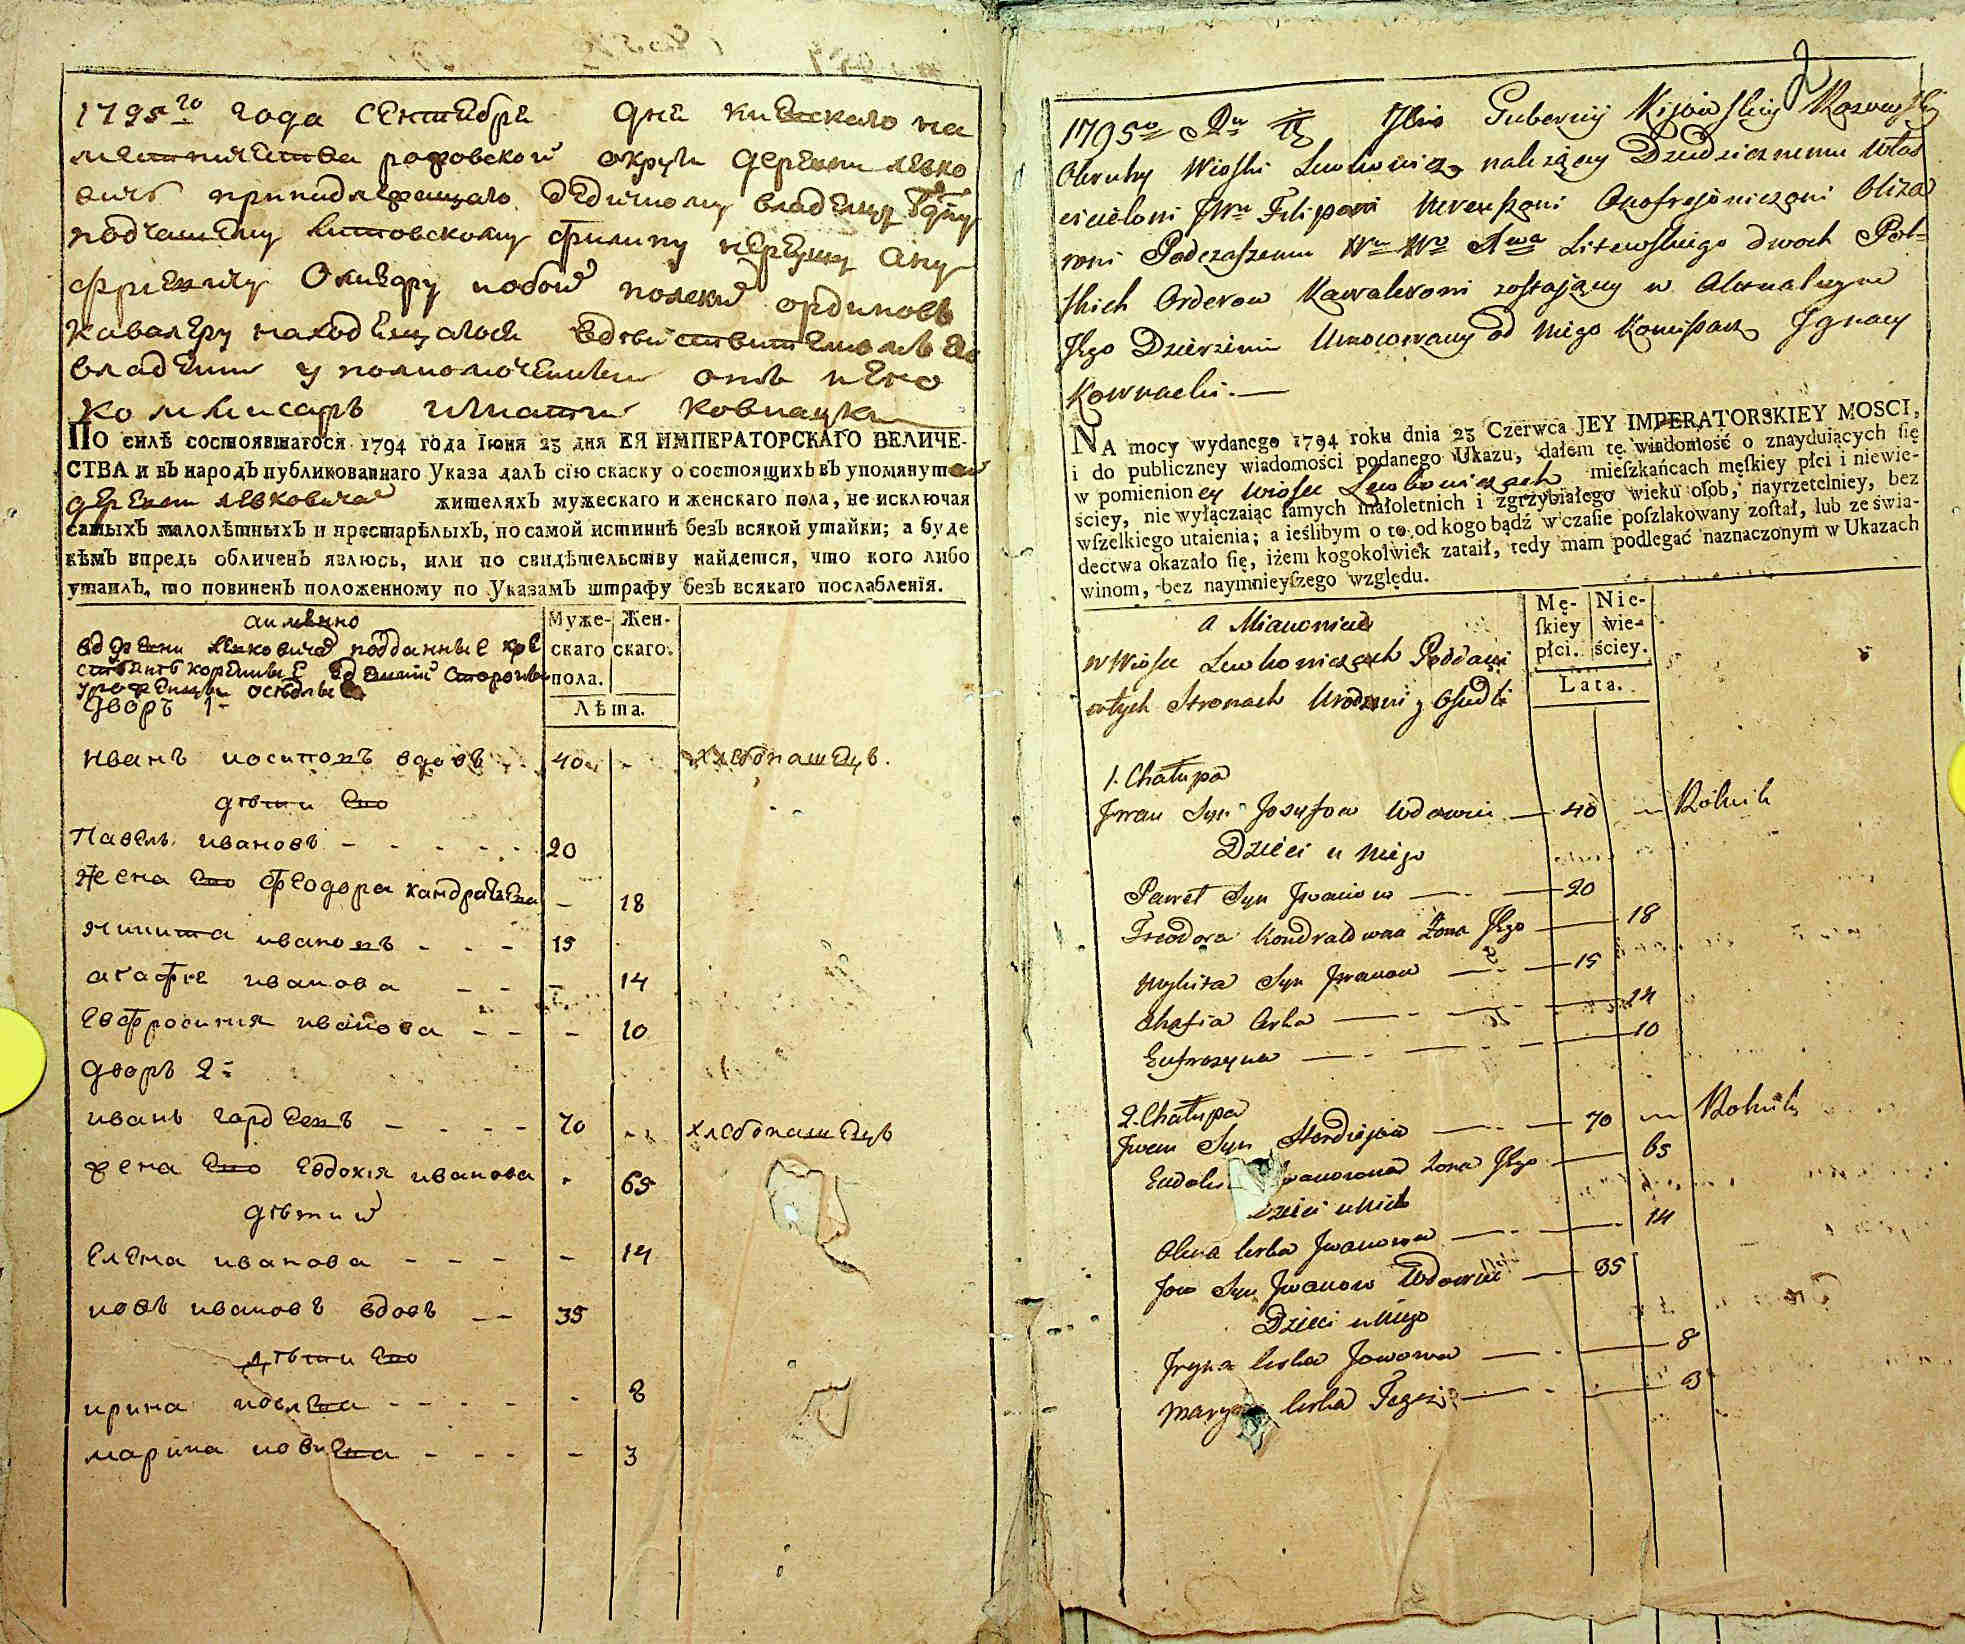 1795го года сентября дня киевского на
местничества рафовской округи деревни левко
вичъ принадлежащаго дедичному владельцу
подчашему литовскому филипу нерешу ану
фриевичу Оливару обой полский ординовъ
кавалеру находящагося вдействителномъ его
владении уполномоченный отъ него
коммисаръ игнатий ковнацки
ПО силѣ состоявшагося 1794 года Іюня 23 дня ЕЯ ИМПЕРАТОРСКАГО ВЕЛИЧЕ-
СТВА и въ народъ публикованнаго Указа далъ сію скаску о состоящихъ въ упомянутой
деревни левковичай жителяхъ мужескаго и женскаго пола, не исключая
самыхъ малолѣтныхъ и престарѣлыхъ, по самой истиннѣ безъ всякой утайки; а буде
кѣмъ впредь обличенъ явлюсь, или по свидѣтельству найдется, что кого либо
утаилъ, то повиненъ положенному по Указамъ штрафу безъ всякаго послабленія.
аимянно
вдеревни левковичай подданные кре
стьянъ коренные вдешний стороны
уроженцы оседлы
Муже-
скаго
пола.
Жен-
скаго.
Лѣта.
Дворъ 1
иванъ иосиповъ вдовъ - - 40 - хлебопашецъ.
дѣти его
Павелъ ивановъ - - - - - 20
Жена его феодора кандратьева - 18
Никита ивановъ - - - 15
агафия иванова - - - 14
Евфросиния иванова - - - 10
дворъ 2
иванъ гордеевъ - - - - 70 - хлебопашецъ
жена его евдокия иванова - 65
дѣтий
Елена иванова - - - - - 14
иовъ ивановъ вдовъ - - 35
дѣти его
ирина иовлева - - - - - 8
марина иовлева - - - - 3
2
1795o Ru Gubernij Kijowskiey
Okruhy Wioski Lewkowicz należący Dziedzicznemu Włas
cicielowi JWu Filipowi Nereuszowi Onofrejowiczowi Oliza
rowi Podczaszemu Wu Wo Xwa Litewskiego dwoch Pol-
skich Orderow Kawalerowi zostaiący w Aktualnym
Jego Dzierżeniu Umocowany od Niego Komissarz Ignacy
Kownacki.—
NA mocy wydanego 1794 roku dnia 23 Czerwca JEY IMPERATORSKIEY MOSCI,
i do publiczney wiadomości podanego Ukazu, dałem tę wiadomość o znayduiących ſię
w pomienioney wiosce Lewkowiczach mieſzkańcach męſkiey płci i niewie-
ściey, nie wyłączaiąc ſamych małoletnich i zgrzybiałego wieku oſob, nayrzetelniey, bez
wſzelkiego utaienia; a ieślibym o to od kogo bądź w czaſie poſzlakowany zoſtał, lub ze świa-
dectwa okazało ſię, iżem kogokolwiek zataił, tedy mam podlegać naznaczonym w Ukazach
winom, bez naymnieyſzego względu.
a Mianowicie
w Wiosce Lewkowiczach Poddani
wtych Stronach Urodzeni y Osiedli
Mę-
ſkiey
płci.
Nie-
wie-
ściey.
Lata.
1. Chałupa
Jwan Syn Jozyfow Wdowiec — 40 — Rolnik
Dzieci u Niego
Paweł Syn Jwanow — — 20
Feodora Kondratowna Żona Jego — 18
Mykita Syn Jwanow — — 15
Ahafia Corka — — 14
Eufrozyna — — — 10
2. Chałupa
Jwan Syn Hordiejow — — 70 — Rolnik
Eudok wanowna Żona Jego — 65
Dzieci u Nich
Olena Corka Jwanowa — — 14
Jow Syn Jwanow Wdowiec — 35
Dzieci u Niego
Jryna Corka Jowowa — — 8
Mary Corka Tegoż — — 3